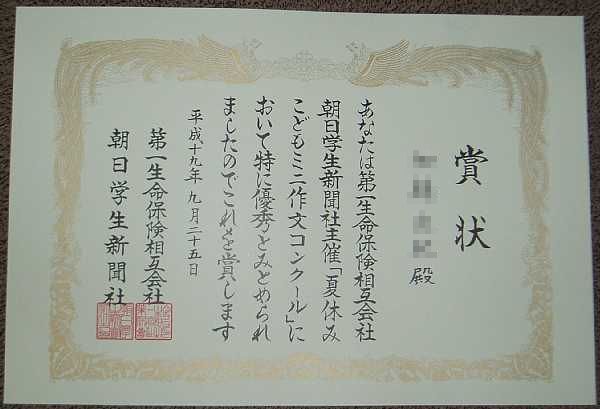 賞状
殿
あなたは第一生命保険相互会社
朝日学生新聞社主催「夏休み
こどもミニ作文コンクール」に
おいて特に優秀とみとめられ
ましたのでこれを賞します
平成十九年九月二十五日
第一生命保険相互会社
朝日学生新聞社